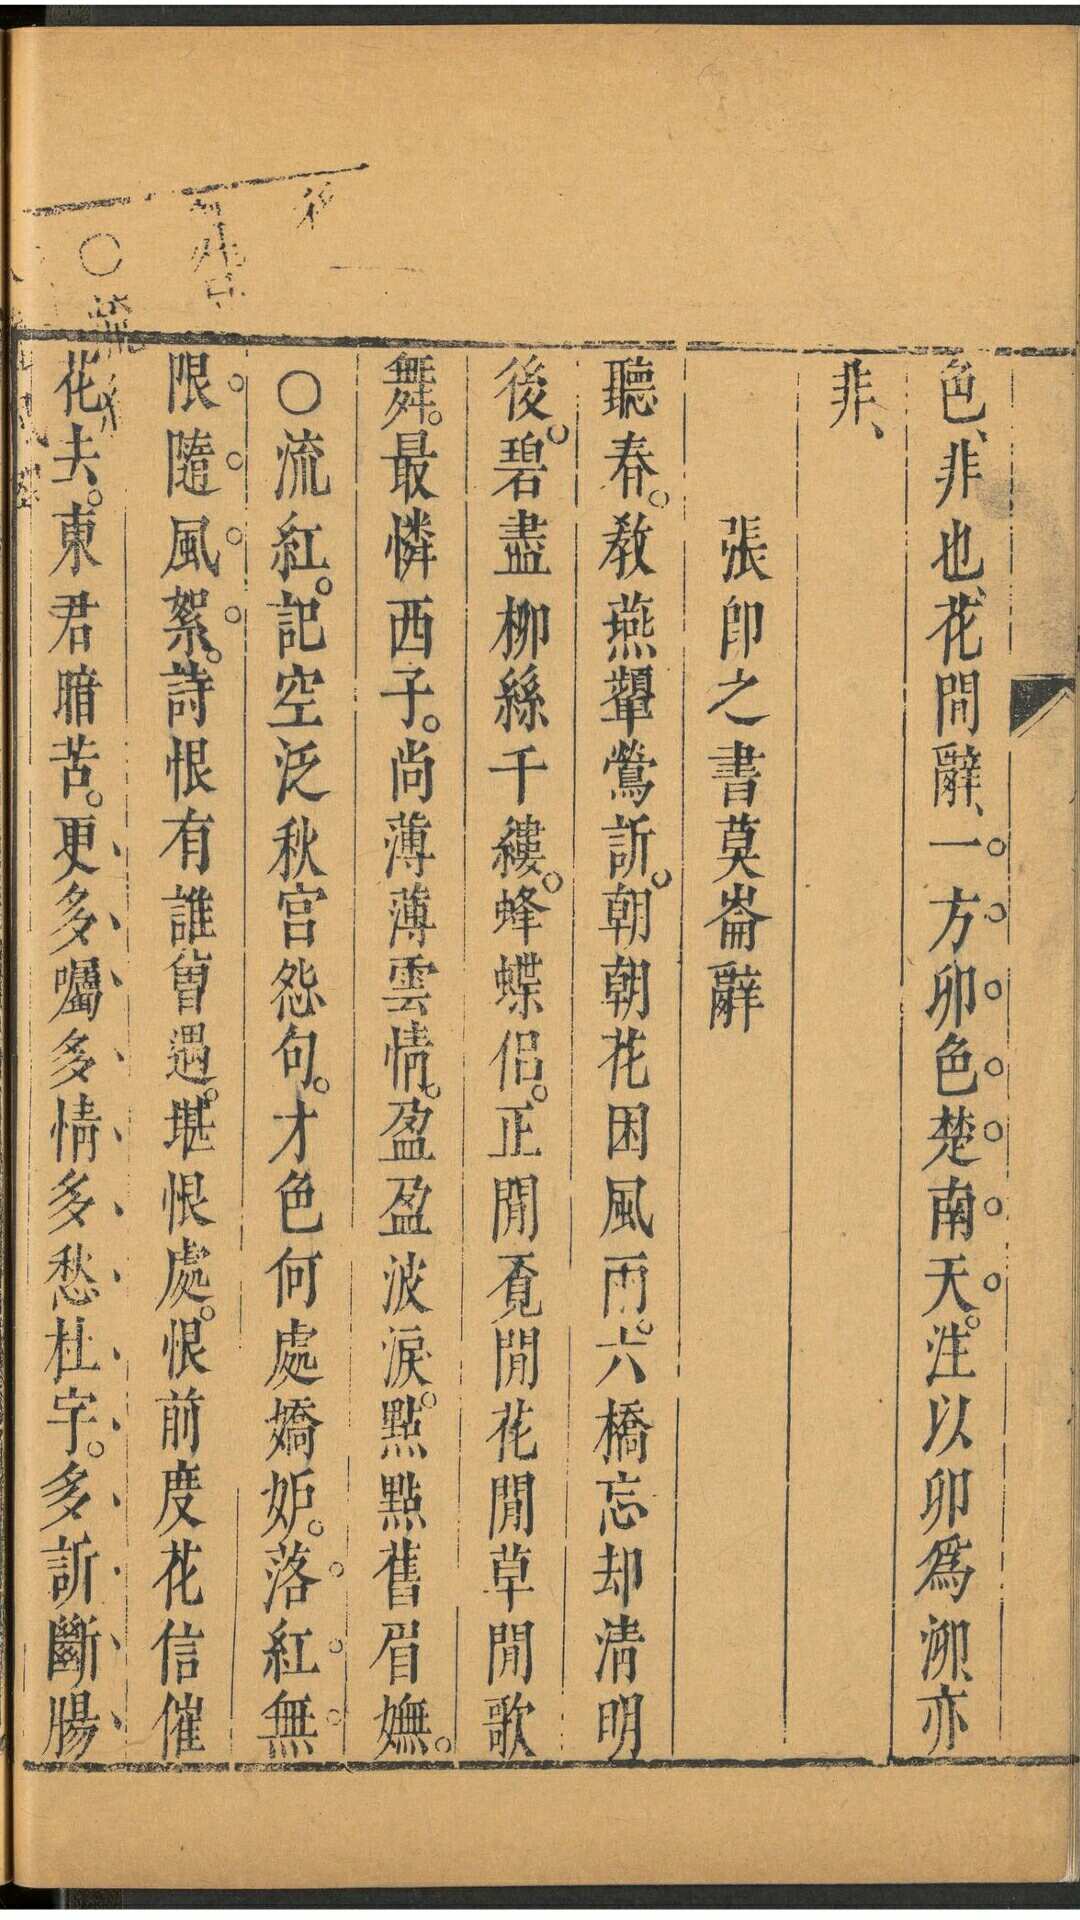 色、非也、花間辭、一方卯色楚南天。注以卯為泖、亦
非、
張卬之書莫崙辭
聽春。教燕顰鶯訴。朝朝花困風雨。六橋忘却清明
後。碧盡柳絲千縷。蜂蝶侶。正閒覔閒花閒草閒歌
舞。最憐西子。尚薄薄雲情。盈盈波淚。點點舊眉嫵。
○流紅。記空泛秋宫怨句。才色何處嬌妒。落紅無
限隨風絮。詩恨有誰曾遇。堪恨處。恨前度花信催
花去。東君暗苦。更多囑多情多愁杜宇。多訴斷腸